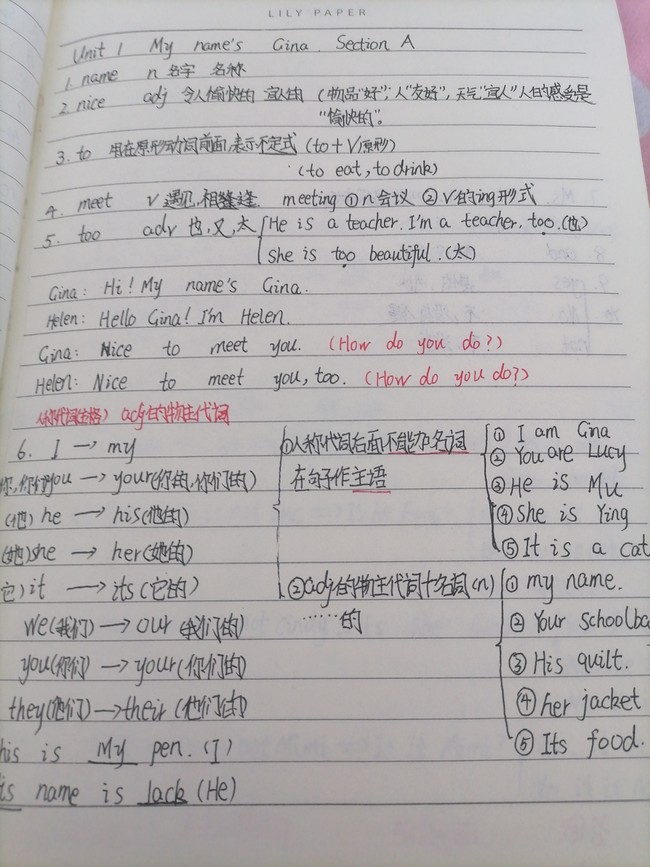 LILY PAPER
Unit 1 My name's Gina. Section A
1. name n 名字 名称
2. nice adj 令人愉快的 宜人的 (物品"好"; 人"友好", 天气"宜人" 人的感受是
"愉快的"。
3. to 用在原形动词前面,表示不定式 (to + V原形)
(to eat, to drink)
4. meet v 遇见,相逢 meeting ① n 会议 ② v的ing形式
5. too adv 也,又,太 He is a teacher. I'm a teacher, too. (也)
She is too beautiful. (太)
Gina: Hi! My name's Gina.
Helen: Hello Gina! I'm Helen.
Gina: Nice to meet you. (How do you do?)
Helen: Nice to meet you, too. (How do you do?)
人称代词(主格) adj的物主代词
6. I → my
你,你们you → your(你的,你们的)
(他) he → his(他的)
(她)she → her(她的)
它) it → its(它的)
we(我们) → our (我们的)
you(你们) → your(你们的)
they(他们) → their (他们的)
his is My pen. (I)
is name is Jack (He)
①人称代词后面不能加名词
在句子作主语
① I am Gina
② You are Lucy
③ He is Mu
④ She is Ying
⑤ It is a cat
②adj的物主代词+名词(n)
……的
① my name.
② Your schoolba
③ His quilt.
④ her jacket
⑤ Its food.